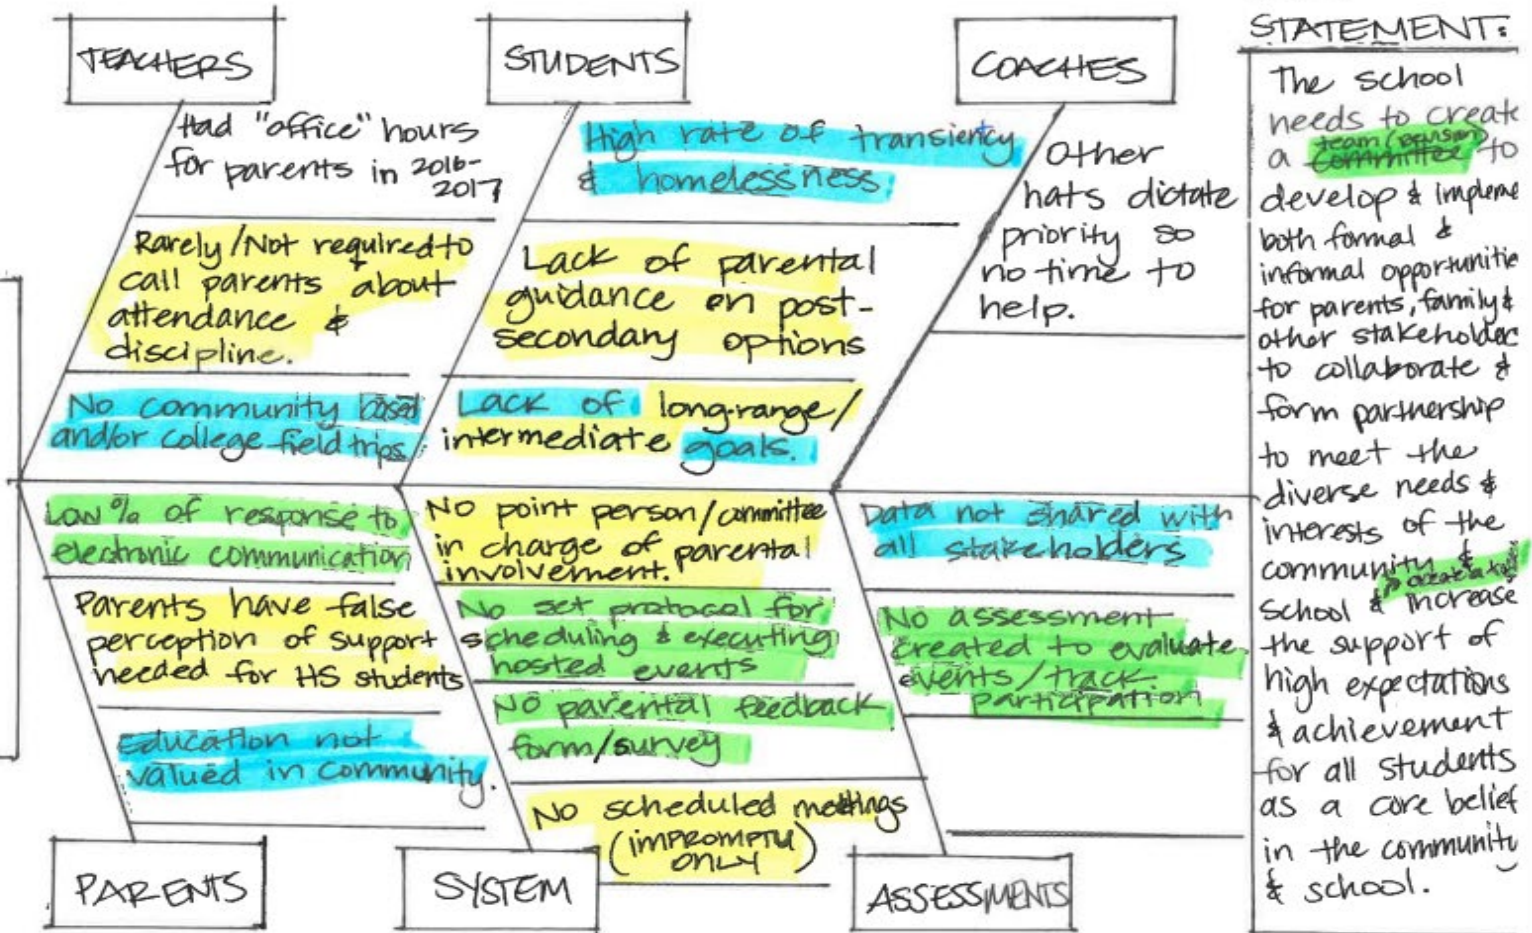 TEACHERS
Had "office" hours
for parents in 2016-
2017
Rarely/Not required to
call parents about
attendance &
discipline.
No community based
and/or college field trips
STUDENTS
High rate of transiency
& homelessness
Lack of parental
guidance on post-
secondary options
Lack of long-range/
intermediate goals.
COACHES
Other
hats dictate
priority so
no time to
help.
Low % of response to
electronic communication
Parents have false
perception of support
needed for HS students
Education not
valued in community.
PARENTS
No point person/committee
in charge of parental
involvement.
No set protocol for
scheduling & executing
hosted events
No parental feedback
form/survey
No scheduled meetings
(IMPROMPTU
ONLY)
SYSTEM
Data not shared with
all stakeholders
No assessment
created to evaluate
events/track
participation
ASSESSMENTS
STATEMENT:
The school
needs to create
team/person
a committee to
develop & impleme
both formal &
informal opportunitie
for parents, family &
other stakeholder
to collaborate &
form partnership
to meet the
diverse needs &
interests of the
community &
create a
school & increase
the support of
high expectations
& achievement
for all students
as a core belief
in the community
& school.